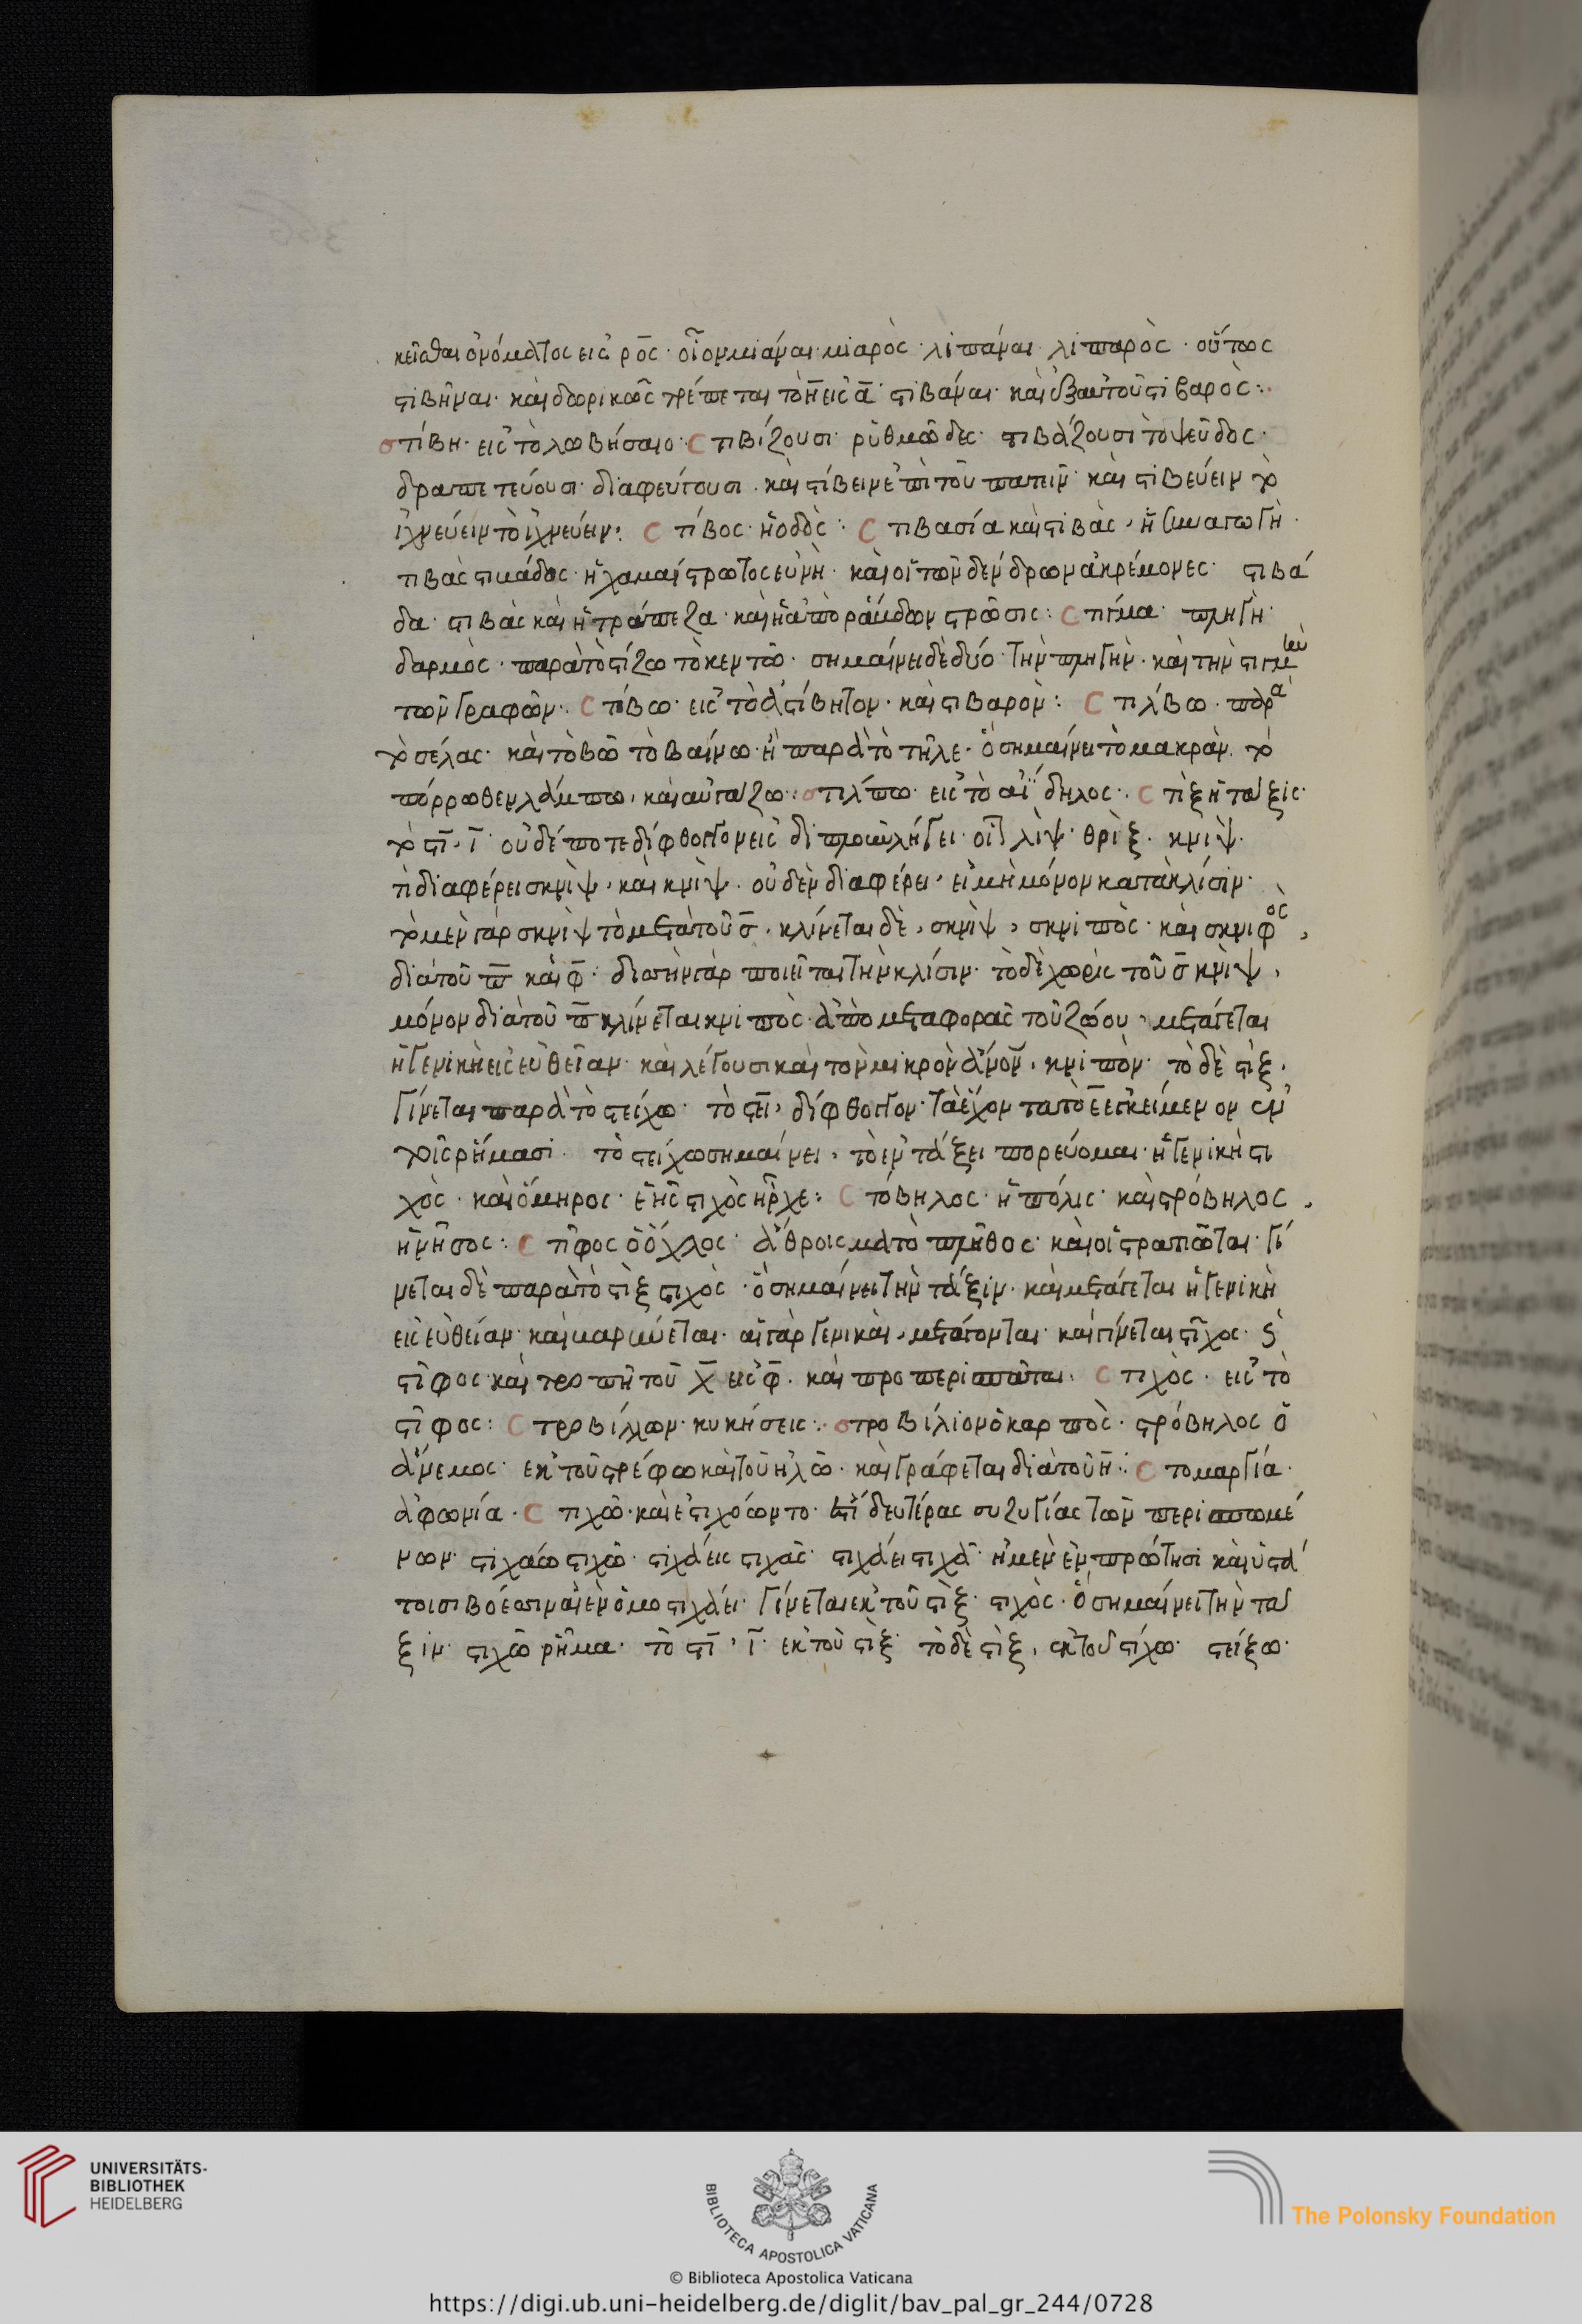 κεῖσθαι ὀνόματος εἰς ρ̅ο̅ς· οἷον μιάναι μιαρὸς· λιπάναι λιπαρὸς· οὕτως
στιβῆναι· καὶ δωρικῶς τρέπεται τὸ η̅ εἰς α̅ στιβάναι· καὶ ἐξ αὐτοῦ στιβαρὸς:
στίβη· εἰς τὸ λωβήσαιο· Στιβίζουσι· ῥυθμῶδες· στιβάζουσι τὸ ψεῦδος·
δραπετεύουσι· διαφεύγουσι· καὶ στίβειν ἐπὶ τοῦ πατεῖν· καὶ στιβεύειν
ἰχνεύειν τὸ ἰχνεύειν: Στίβος· ἡ ὁδὸς: Στιβασία καὶ στιβὰς, ἡ συναγωγὴ·
στιβὰς στιβάδος· ἡ χαμαίστρωτος εὐνὴ· καὶ οἱ τῶν δένδρων ἀκρέμονες· στιβά
δα· στιβὰς καὶ ἡ τράπεζα· καὶ ἡ ἀπὸ ῥάβδων στρῶσις: Στίγμα· πληγὴ·
δαρμὸς· παρὰ τὸ στίζω τὸ κεντῶ· σημαίνει δὲ δύο· τὴν πληγὴν· καὶ τὴν στιγμὴν
τῶν γραφῶν: Στίβω· εἰς τὸ ἀστίβητον· καὶ στιβαρὸν: Στίλβω· παρὰ
τὸ σέλας· καὶ τὸ βῶ τὸ βαίνω· ἢ παρὰ τὸ τῆλε· ὃ σημαίνει τὸ μακρὰν· τὸ
πόρρωθεν λάμπω, καὶ αὐγάζω: στίλπω· εἰς τὸ ἀΐδηλος: Στὶξ ἡ τάξις·
τὸ στι̅· ι̅· οὐδέποτε δίφθογγον εἰς λήγει· οἷον λὶψ· θρὶξ· κνὶψ·
τί διαφέρει σκνὶψ, καὶ κνὶψ· οὐδὲν διαφέρει, εἰ μὴ μόνον κατὰ κλίσιν·
τὸ μὲν γὰρ σκνὶψ τὸ μετὰ τοῦ σ̅, κλίνεται δὲ, σκνὶψ, σκνιπὸς καὶ σκνιφὸς,
διὰ τοῦ π̅ καὶ φ̅· δισσὴν γὰρ ποιεῖται τὴν κλίσιν· τὸ δὲ χωρὶς τοῦ σ̅ κνὶψ,
μόνον διὰ τοῦ π̅ κλίνεται κνιπὸς· ἀπὸ μεταφορᾶς τοῦ ζώου, μετάγεται
ἡ γενικὴ εἰς εὐθεῖαν· καὶ λέγουσι καὶ τὸν μικρὸν, κνιπὸν· τὸ δὲ στὶξ,
γίνεται παρὰ τὸ στείχω· τὸ στει̅, δίφθογγον·
ῥήμασι· τὸ στείχω σημαίνει, τὸ ἐν τάξει πορεύομαι· ἡ γενικὴ στι
χὸς· καὶ ὅμηρος· ἑῆς στιχὸς ἦρχε: Στόβηλος· ἡ πόλις· καὶ στρόβηλος,
ἡ νῆσος: Στῖφος ὁ ὄχλος· ἄθροισμα τὸ πλῆθος· καὶ οἱ στρατιῶται· γί
νεται δὲ παρὰ τὸ στὶξ στιχὸς· ὃ σημαίνει τὴν τάξιν· καὶ μετάγεται ἡ γενικὴ
εἰς εὐθεῖαν· αἱ γὰρ γενικαὶ, μετάγονται· καὶ γίνεται στῖχος·
στῖφος καὶ τροπῇ τοῦ χ̅ εἰς φ̅· καὶ προπερισπᾶται· Στιχὸς· εἰς τὸ
στῖφος: Στροβίλλων· κυκήσεις: στροβίλιον ὁ καρπὸς· στρόβηλος ὁ
ἄνεμος· ἐκ τοῦ στρέφω καὶ τοῦ ἠλῶ· καὶ γράφεται διὰ τοῦ η̅: Στομαργία·
ἀφωνία· Στιχῶ· καὶ ἐστιχόωντο· ἐπὶ δευτέρας συζυγίας τῶν περισπωμέ
νων· στιχάω στιχῶ· στιχάεις στιχᾶς· στιχάει στιχᾶ· ἠμὲν ἐν πρώτησι καὶ ὑστά
τοισι βόεσσιν αἰὲν ὁμοστιχάει· γίνεται ἐκ τοῦ στὶξ στιχὸς· ὃ σημαίνει τὴν τά
ξιν· στιχῶ ῥῆμα· τὸ στι̅, ι̅· ἐκ τοῦ στὶξ· τὸ δὲ στὶξ, ἐκ τοῦ στίχω· στείξω·
UNIVERSITÄTS-
BIBLIOTHEK
HEIDELBERG
BIBLIOTECA APOSTOLICA VATICANA
The Polonsky Foundation
© Biblioteca Apostolica Vaticana
https://digi.ub.uni-heidelberg.de/diglit/bav_pal_gr_244/0728